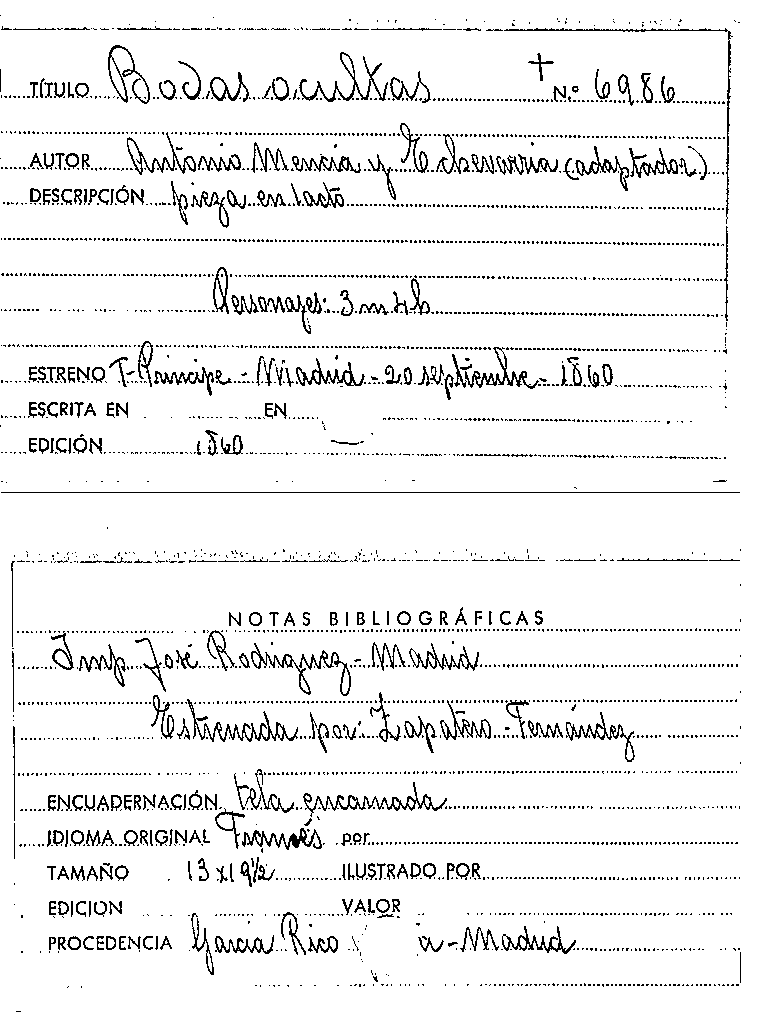 TÍTULO Bodas ocultas + N.º 6986
AUTOR Antonio Mencia y Echevarria (adaptador)
DESCRIPCIÓN pieza en 1 acto
Personajes: 3 m 4 h
ESTRENO T- Principe - Madrid - 20 septiembre - 1860
ESCRITA EN EN
EDICIÓN 1860 —
NOTAS BIBLIOGRÁFICAS
Imp. José Rodriguez - Madrid
Estrenada por: Zapatero - Fernández
ENCUADERNACIÓN tela encarnada
IDIOMA ORIGINAL Francés por
TAMAÑO 13 x 19½ ILUSTRADO POR
EDICION VALOR
PROCEDENCIA Garcia Rico a - Madrid